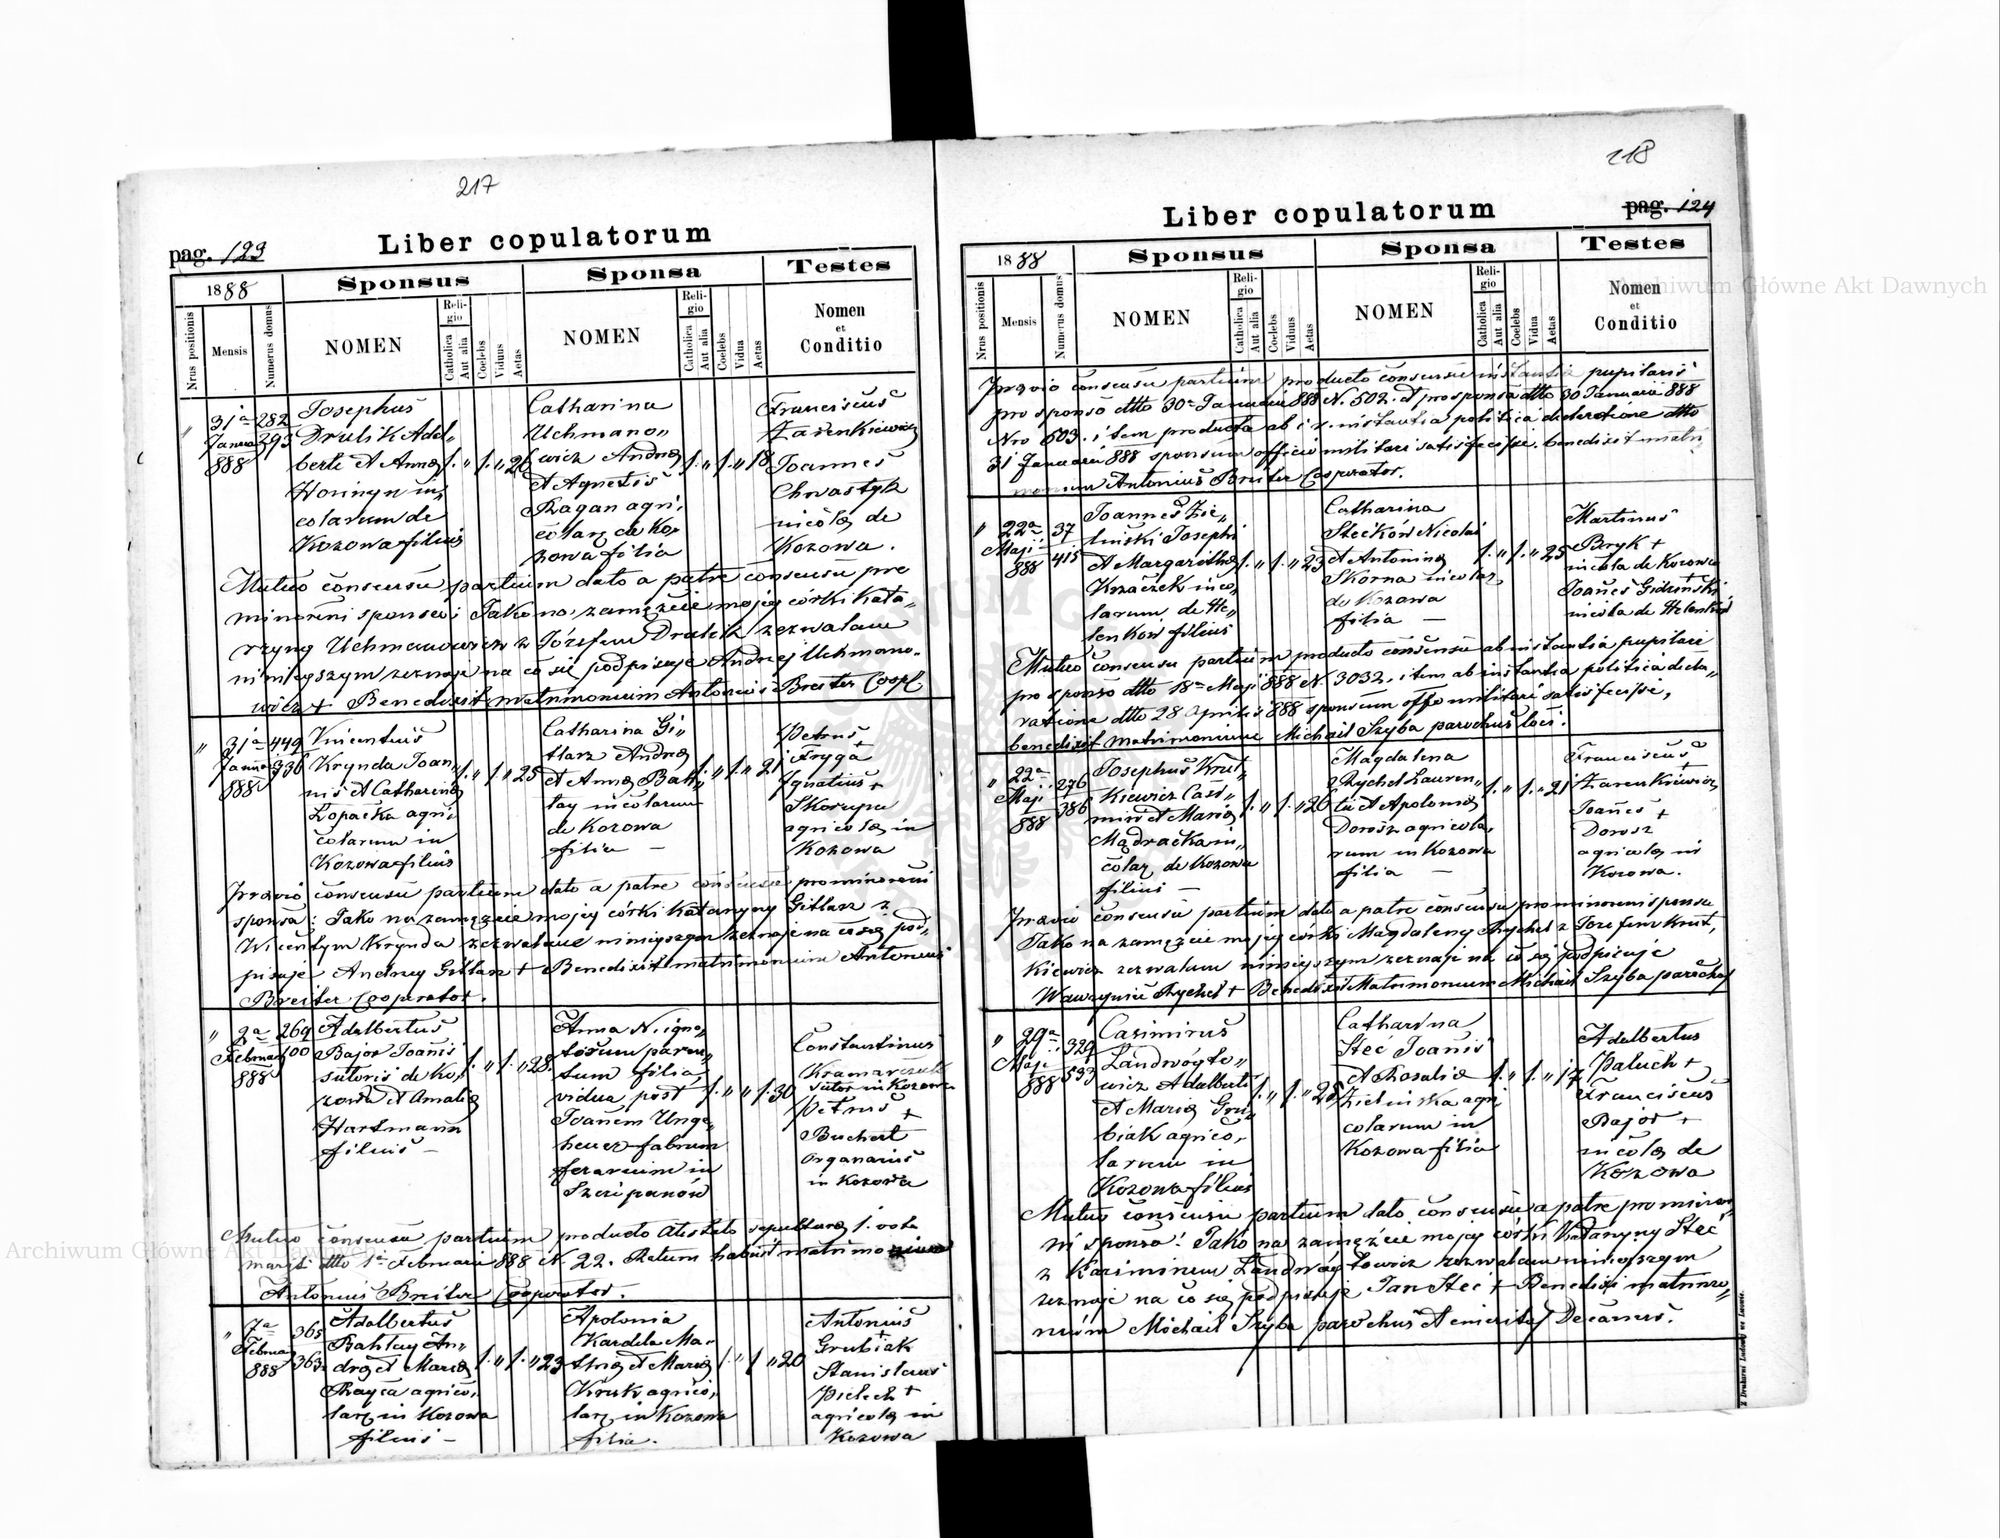 217
Liber copulatorum
pag. 123
1888
Sponsus
Sponsa
Testes
Nrus positionis
Mensis
Numerus domus
NOMEN
Reli-
gio
Catholica
Aut alia
Coelebs
Viduus
Aetas
NOMEN
Reli-
gio
Catholica
Aut alia
Coelebs
Vidua
Aetas
Nomen
et
Conditio
" 31a
Januar
888
282
393
Josephus
Drulik Adal„
berti et Annæ
in„
colarum de
Kozowa filius
1. " 1. " 26
Catharina
Uchmano„
wicz Andreæ
et Agnetis
Ragan agri„
colar de Ko„
zowa filia
1. " 1. " 18
Franciscus
Zarenkiewicz
Joannes
Chwastyk
incolæ de
Kozowa.
Mutuo consensu partium dato a patre consensu pro
minoreni sponsa: Jako na zamęzcie mojej córki Kata„
rzyny Uchmanowicz z Józefem Drulik zezwalam
niniejszym zeznaje na co się podpisuje Andrzej Uchmano„
wicz + Benedixit matrimonium Antonius Breiter Coopl
" 31a
Januar
888
449
336
Vincentius
Krynda Joan„
nis et Catharinæ
Łopacka agri„
colarum in
Kozowa filius
1. " 1. " 25
Catharina Gi„
tlarz Andreæ
et Annæ
lay incolarum
de Kozowa
filia —
1. " 1. " 21
Petrus
Fryga +
Ignatius +
Skoryna
agricolæ in
Kozowa
Prævio consensu partium dato a patre consensu pro minoreni
sponsa: Jako na zamęzcie mojej córki Katarzyny Gitlarz z
Wicentym Krynda zezwalam niniejszym zeznaje na co się pod„
pisuje Andrzej Gitlarz + Benedixit matrimonium Antonius
Breiter Cooperator.
" 2a
Februar
888
269
100
Adalbertus
Bajor Joanis
sutoris de Ko„
zowa et Amaliæ
Hartmann
filius —
1. " 1. " 28
Anna N. igno„
torum paren„
tum filia
vidua post
Joanem Unge„
heuer fabrum
ferarium in
Szczepanów
1. " " 1. 30
Constantinus
Kramarczuk
sutor in Kozowa
Petrus +
Buchert
organarius
in Kozowa
Mutuo consensu partium producto atestato sepulturæ 1. vota
mariti dtto 1a Februarii 888 N. 22. Ratum habuit matrimonium
Antonius Breiter Cooperator.
" 7a
Februar
888
365
363
Adalbertus
Bahley An„
dreæ et Mariæ
Rayca agrico„
lar in Kozowa
filius —
1. " 1. " 23
Apolonia
Kardela Ma„
thiæ et Mariæ
Kruk agrico„
lar in Kozowa
filia.
1. " 1 " 20
Antonius
Grubiak +
Stanislaus
Pielech +
agricolæ in
Kozowa
218
Liber copulatorum
pag. 124
1888
Sponsus
Sponsa
Testes
Nrus positionis
Mensis
Numerus domus
NOMEN
Reli-
gio
Catholica
Aut alia
Coelebs
Viduus
Aetas
NOMEN
Reli-
gio
Catholica
Aut alia
Coelebs
Vidua
Aetas
Nomen
et
Conditio
Prævio consensu partium producto consensu instantia pupilaris
pro sponso dtto 30a Januarii 888 N. 502. et pro sponsa dtto 30 Januarii 888
Nro 503. item producta ab instantia politica declaratione dtto
31 Januarii 888 sponsum officio militari satisfecisse. benedixit matri
monium Antonius Breiter Cooperator.
" 22a
Maji
888
37
415
Joannes Zie„
liński Josephi
et Margarethæ
Kozaczek inco„
larum de He„
lenków filius
1. " 1. " 23
Catharina
Steckow Nicolai
et Antoninæ
Skorna incolar
de Kozowa
filia —
1. " 1. " 25
Martinus
Bryk +
incola de Kozowa
Joanes Gidziński +
incola de Helenków
Mutuo consensu partium producto consensu ab instantia pupilari
pro sponso dtto 18a Maji 888 N. 3032, item ab instantia politica decla„
ratione dtto 28 Aprilis 888 sponsum offo militari satisfecisse,
benedixit matrimonium Michael Szyba parochus loci.
" 22a
Maji
888
276
386
Josephus Krut„
kiewicz Casi„
miri et Mariæ
Mądracka in„
colar de Kozowa
filius —
1. " 1. " 26
Magdalena
Rychel Lauren„
tii et Apoloniæ
Dorosz agricola„
rum in Kozowa
filia —
1. " 1. " 21
Franciscus
Zarenkiewicz
Joanes +
Dorosz
agricolæ in
Kozowa.
Prævio consensu partium dato a patre consensu pro minoreni sponsa
Jako na zamęzcie mojej córki Magdaleny Rychel z Jozefem Krut„
kiewicz zezwalam niniejszym zeznaje na co się podpisuje
Wawrzyniec Rychel + Benedixit Matrimonium Michael Szyba parochus
" 29a
Maji
888
329
533
Casimirus
Landwójto„
wicz Adalberti
et Mariæ Gru„
biak agrico„
larum in
Kozowa filius
1. " 1. " 25
Catharina
Steć Joanis
et Rosaliæ
Zielinska agri„
colarum in
Kozowa filia
1. " 1. " 17
Adalbertus
Paluch +
Franciscus
Bajor +
incolæ de
Kozowa
Mutuo consensu partium dato consensu a patre pro minore„
ni sponsa: Jako na zamęzcie mojej córki Katarzyny Steć
z Kazimirem Landwójtowicz zezwalam niniejszym
zeznaje na co się podpisuje Jan Steć + Benedixi matrimo„
nium Michael Szyba parochus et emeritus Decanus.
Z Drukarni Ludowej we Lwowie.
Archiwum Główne Akt Dawnych
Archiwum Główne Akt Dawnych